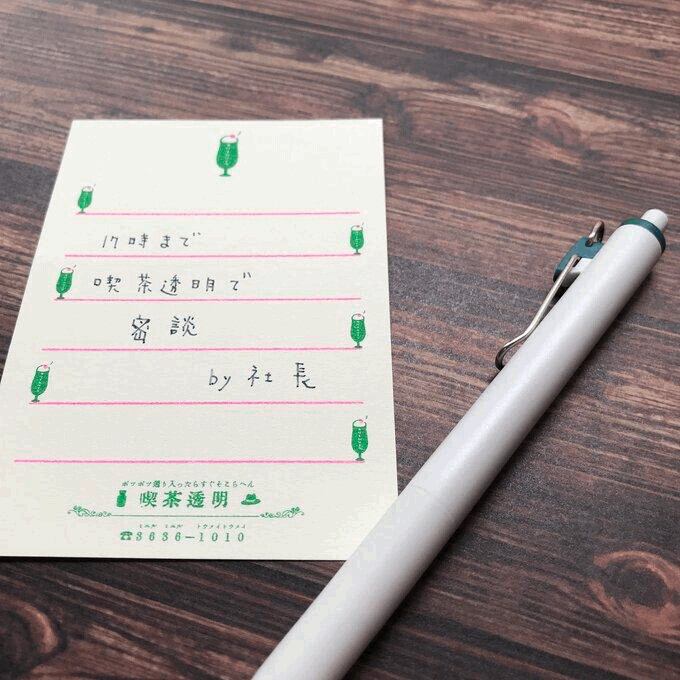 17時まで
喫茶透明で
密談
by 社長
ポツポツ通り入ったらすぐそこらへん
喫茶透明
ミエル ミエル トウメイトウメイ
☎3636-1010